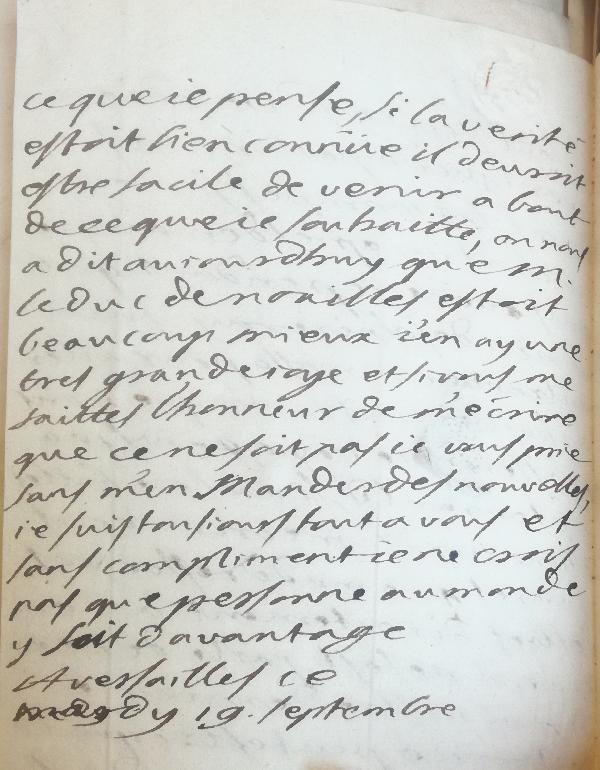 ce que ie pense, si la verité
estoit bien connüe il deuroit
estre facile de venir a bout
de ce que ie souhaitte, on nous
a dit auiourdhuy que m.
le duc de noailles estoit
beaucoup mieux i'en ay une
tres grande ioye et si vous me
faittes l'honneur de m'écrire
que ce ne soit pas ie vous prie
sans m'en Mander des nouvelles,
ie suis tousiours tout a vous et
sans compliment ie ne crois
pas que personne au monde
y soit davantage
A versailles ce
mardy 19. septembre